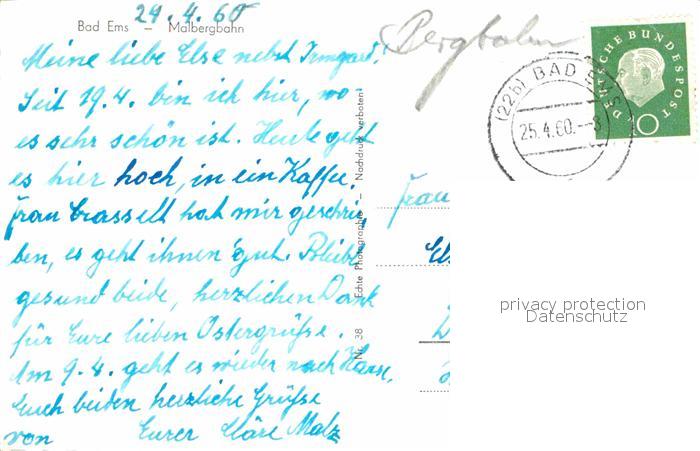 24.4.60
Bad Ems — Malbergbahn
Bergbahn
Meine liebe Else nebst Irmgard!
Seit 19.4. bin ich hier, wo
es sehr schön ist. Heute geht
es hier hoch, in ein Kaffee.
Frau hat mir geschrie-
ben, es geht ihnen gut. Bleibt
gesund beide, herzlichen Dank
für Eure lieben Ostergrüße.
Am 9.. geht es wieder nach Hause,
Euch beiden herzliche Grüße
von Eurer Cläre
Nr. 38 Echte Photographie — Nachdruck verboten
DEUTSCHE BUNDESPOST
10
(22b) BAD
25.4.60.—8
Frau
privacy protection
Datenschutz